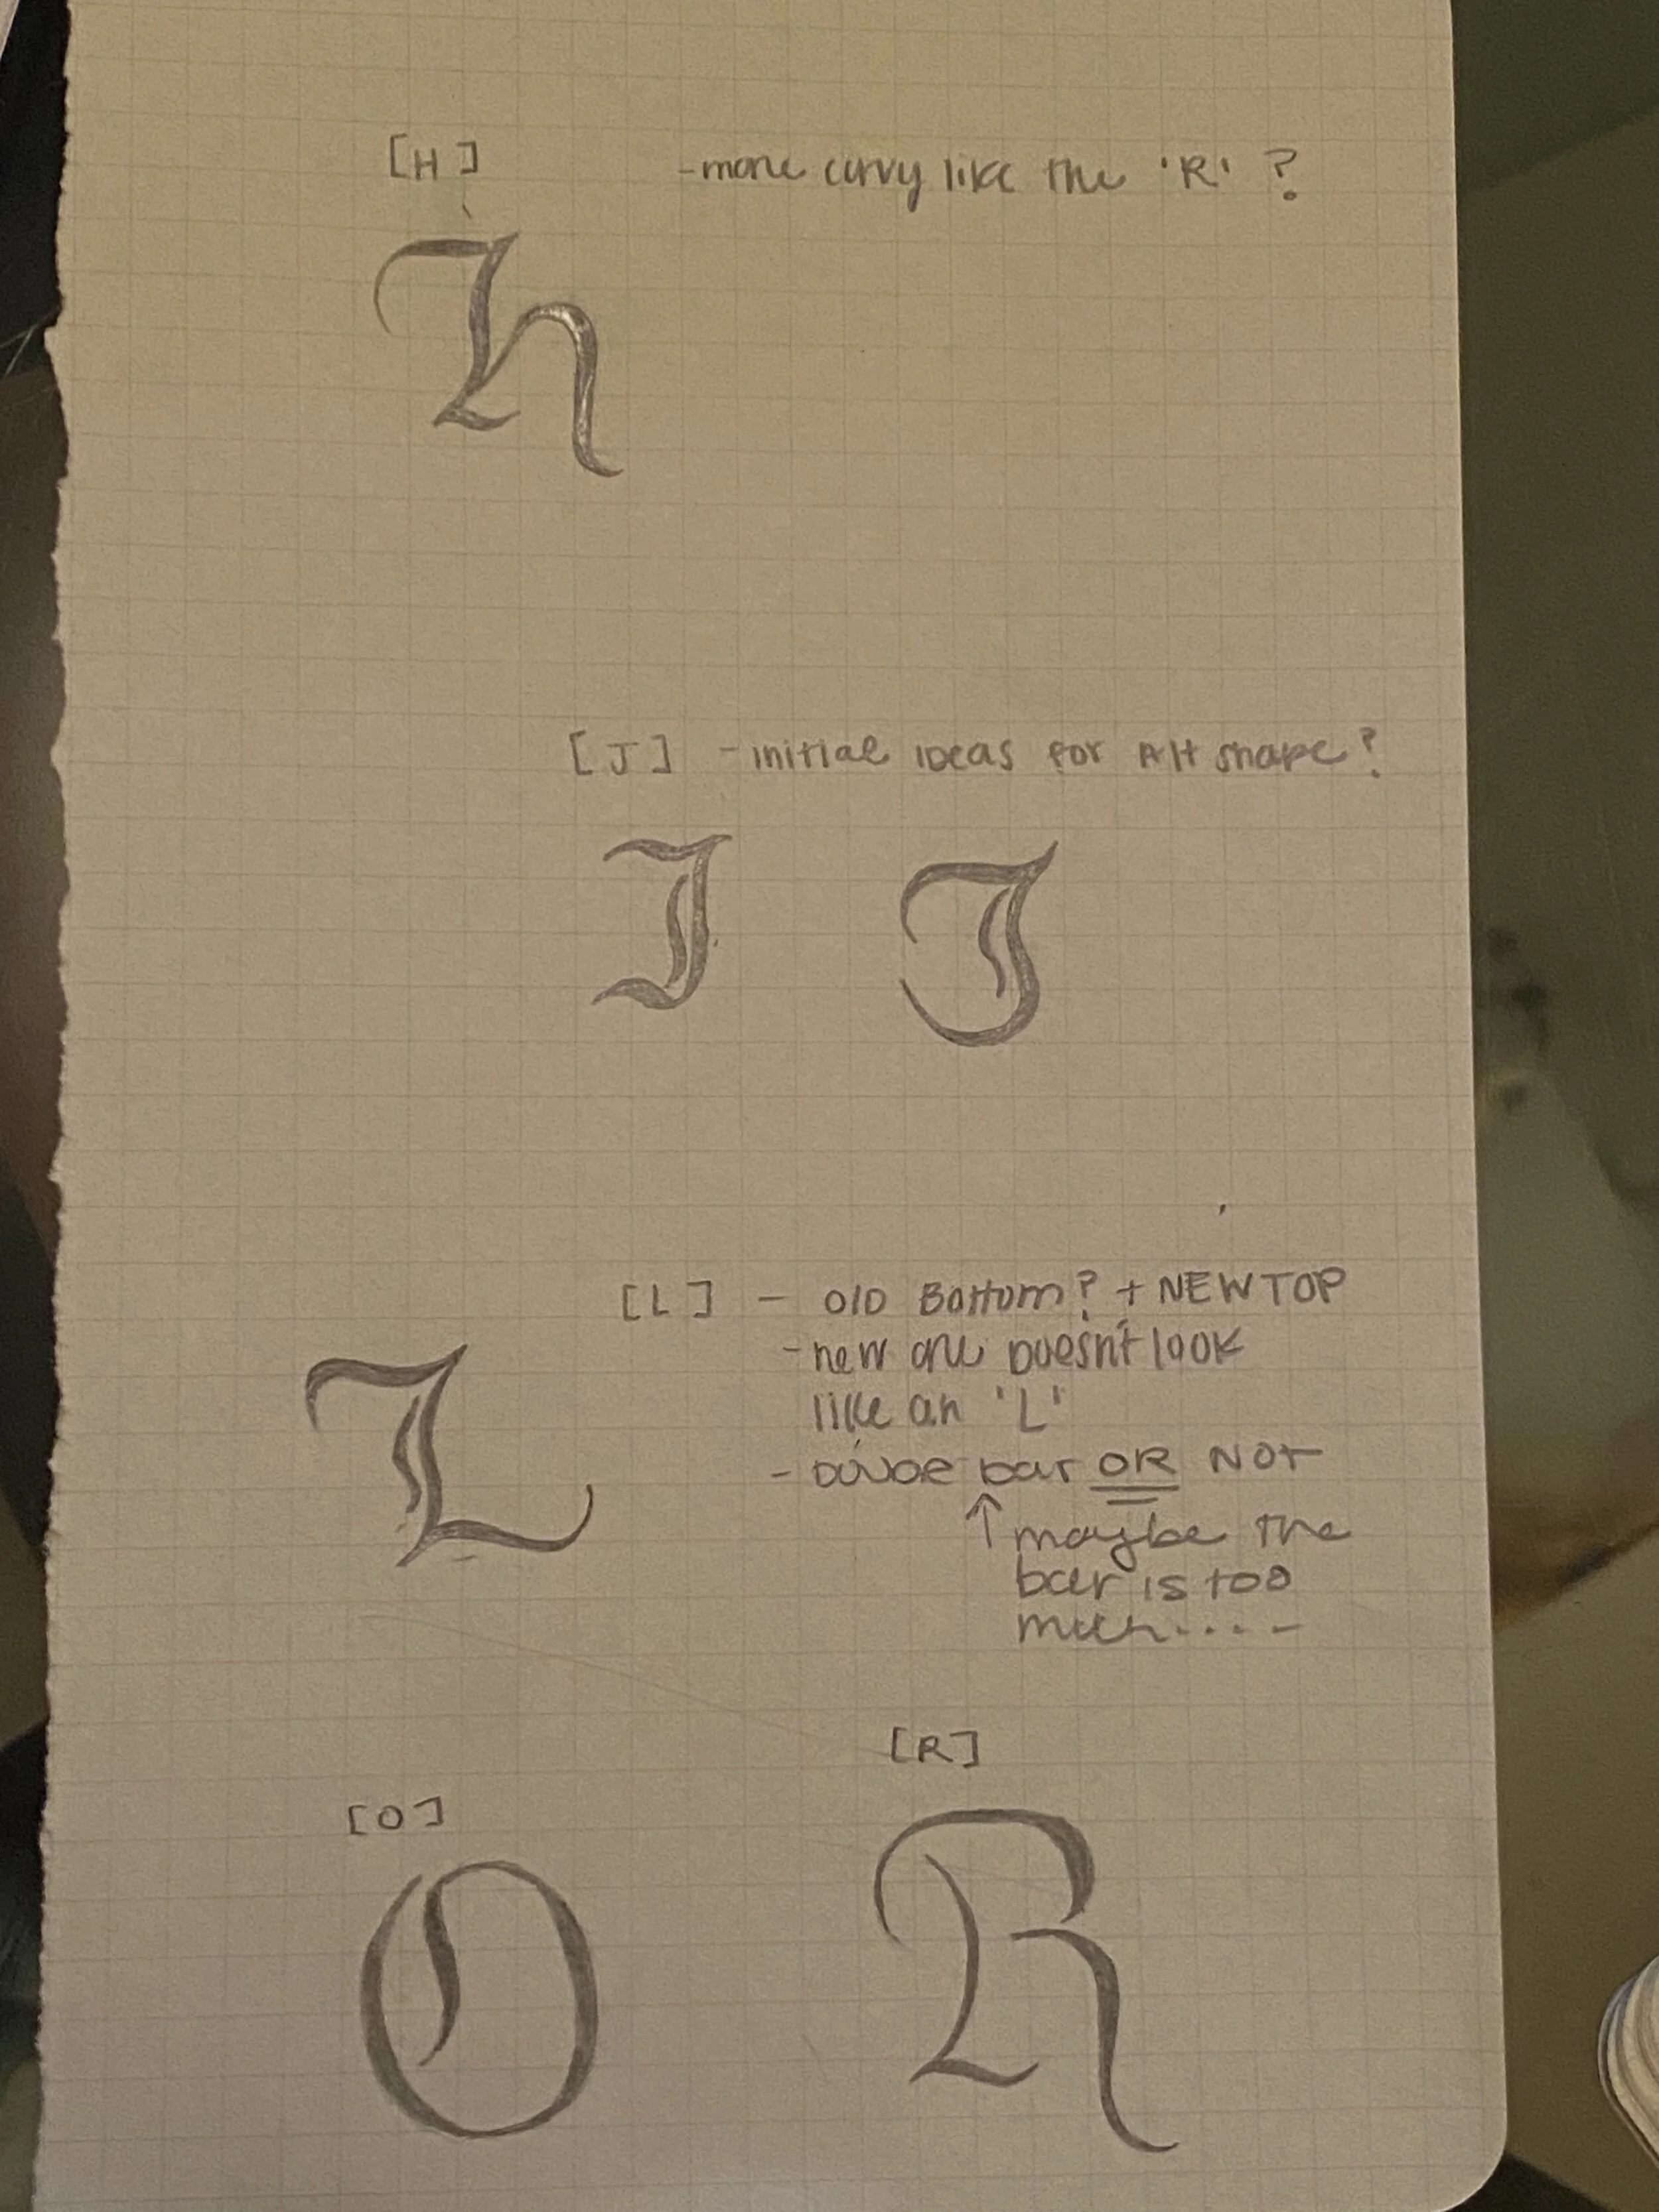 [H] -more curvy like the 'R' ?
H
[J] -initial ideas for Alt shape?
J J
[L] - OlD Bottom? + NEW TOP
-new one Doesn't look
like an 'L'
L
- bar OR NOT
↑ maybe the
bar is too
much.....
[R]
[O]
O R